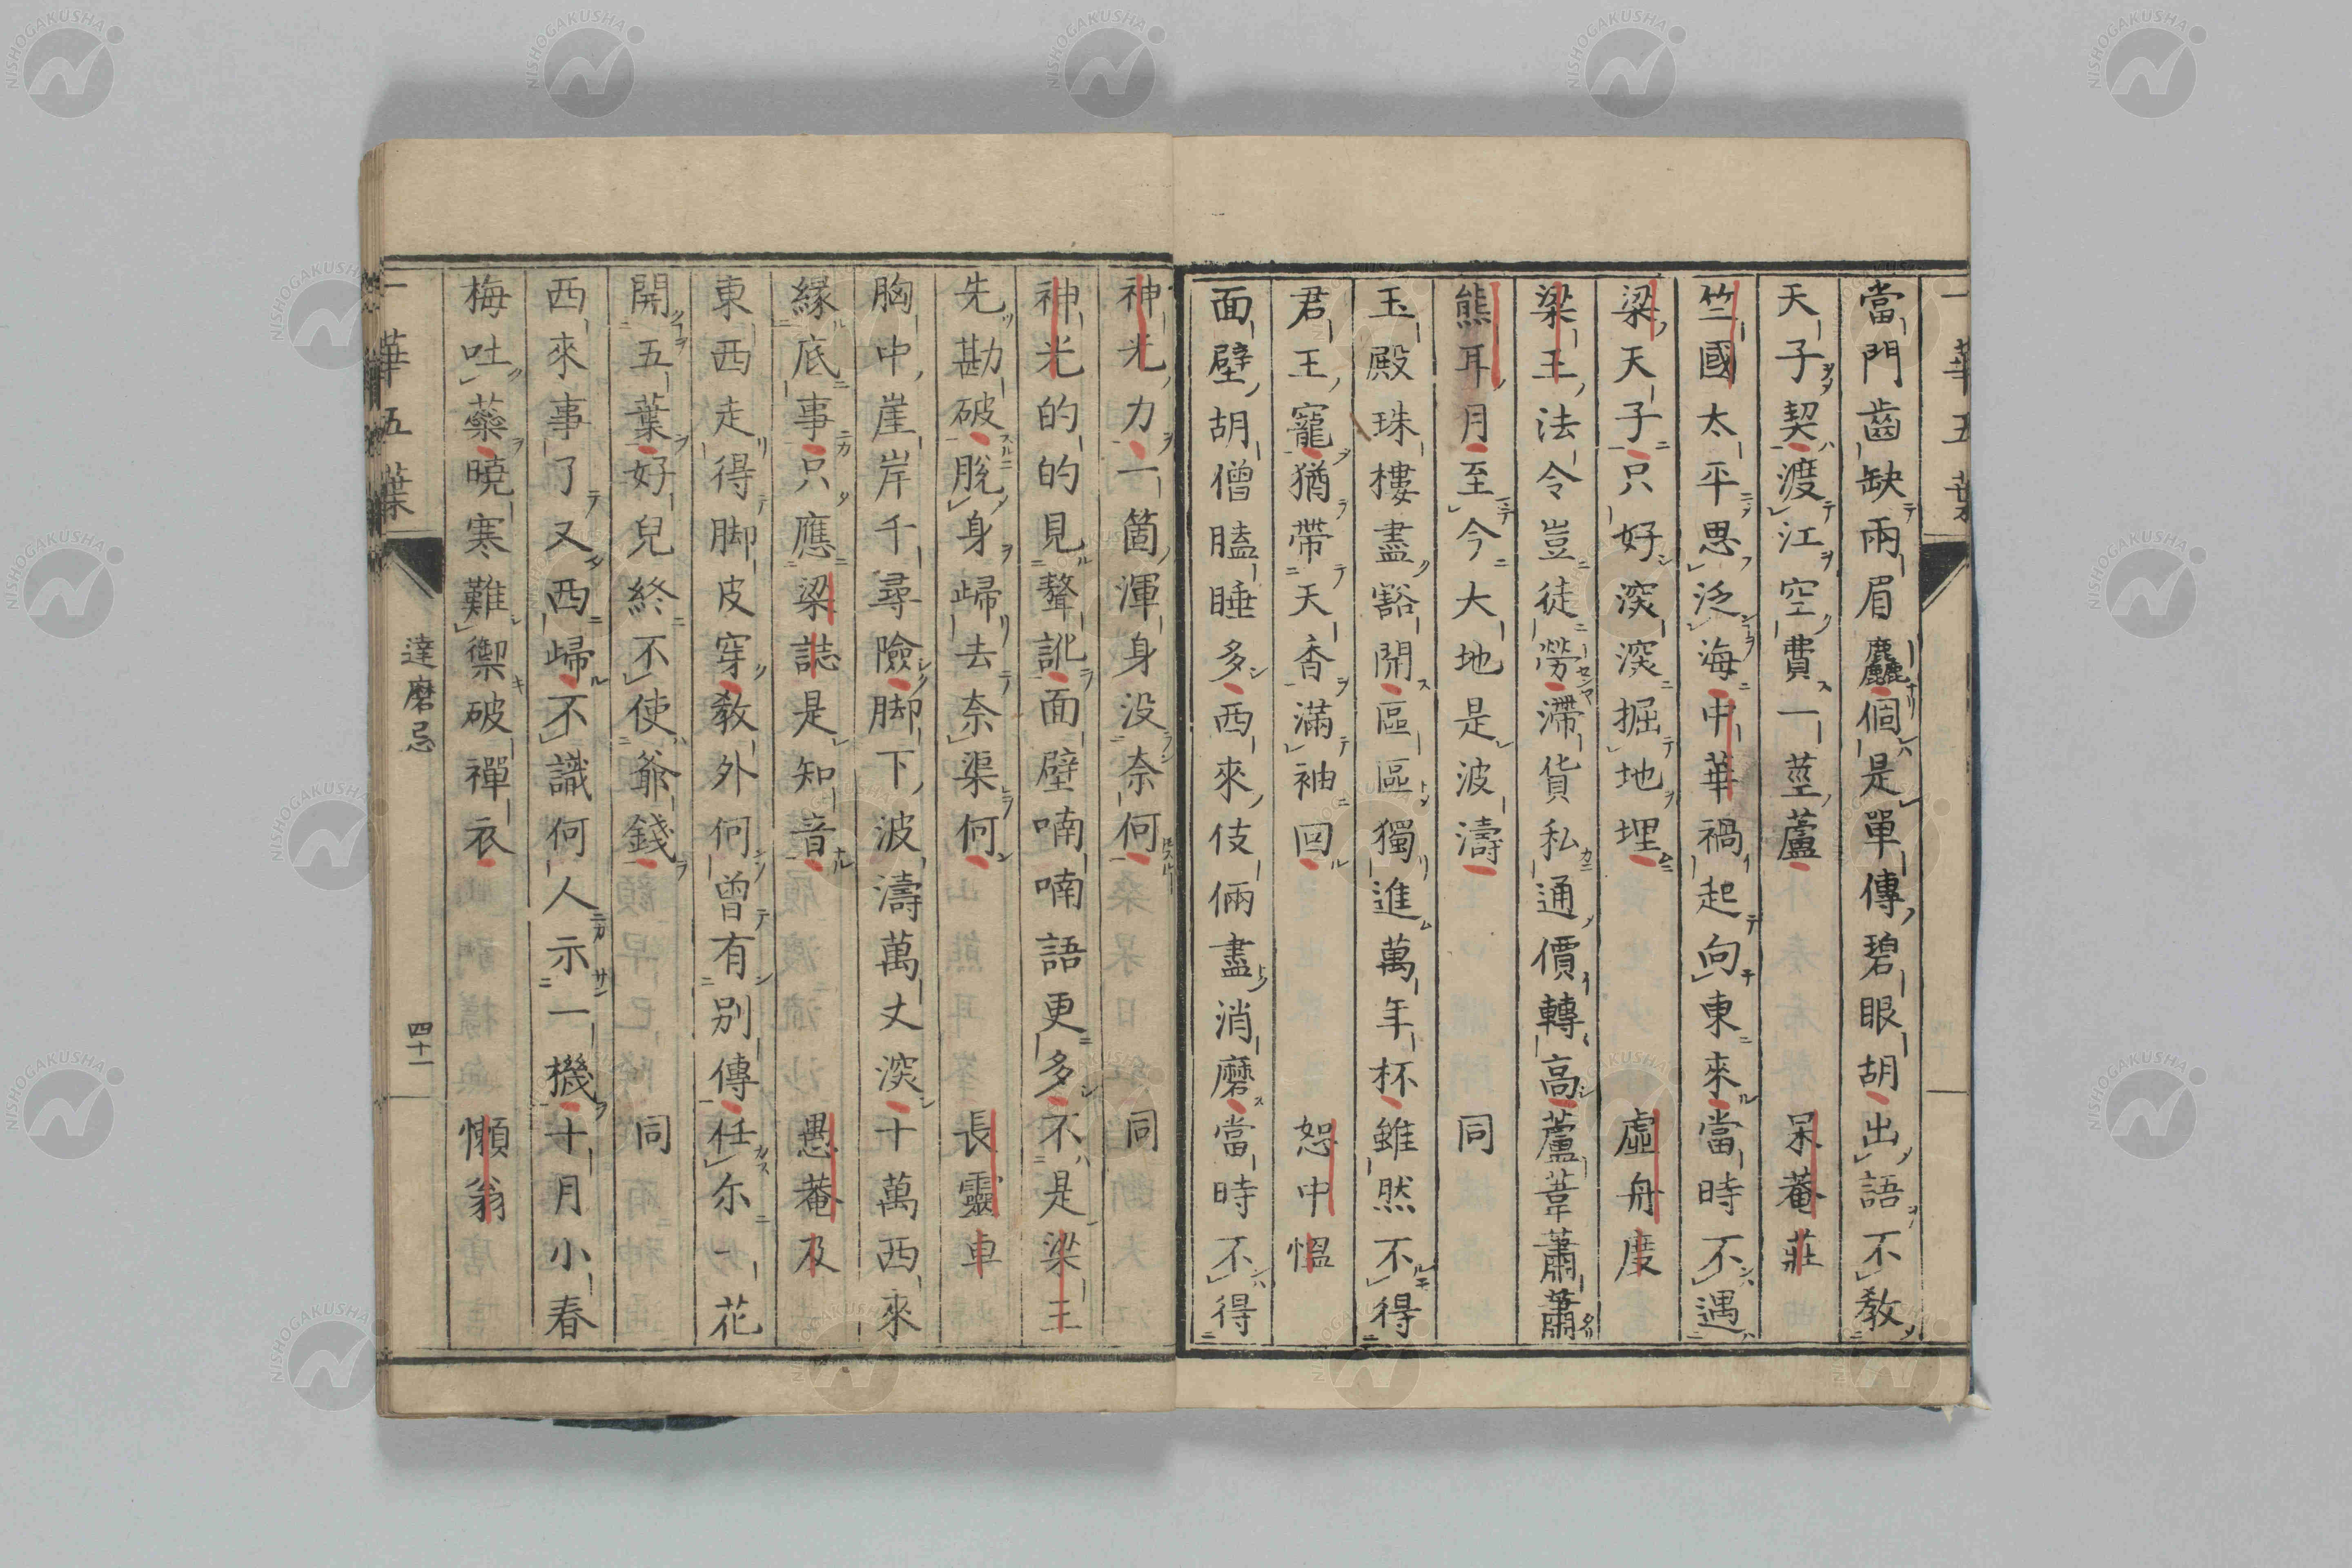 一華五葉
當門齒缺兩眉麤個是單傳碧眼胡出語不敎
天子契渡江空費一莖蘆　呆菴莊
竺國太平思泛海中華禍起向東來當時不遇
梁天子只好深深掘地埋　虛舟度
梁王法令豈徒勞滯貨私通價轉高蘆葦蕭蕭
熊耳月至今大地是波濤　同
玉殿珠樓盡豁開區區獨進萬年杯雖然不得
君王寵猶帶天香滿袖回　恕中慍
面壁胡僧瞌睡多西來伎倆盡消磨當時不得
神光力一箇渾身没奈何　同
神光的的見聱訛面壁喃喃語更多不是梁王
先勘破脫身歸去奈渠何　長靈卓
胸中崖岸千尋險脚下波濤萬丈深十萬西來
縁底事只應梁誌是知音　愚菴及
東西走得脚皮穿敎外何曾有別傳任尔一花
開五葉好兒終不使爺錢　同
西來事了又西歸不識何人示一機十月小春
梅吐蘂曉寒難禦破襌衣　懶翁
一華五葉　達磨忌　四十一
NISHOGAKUSHA